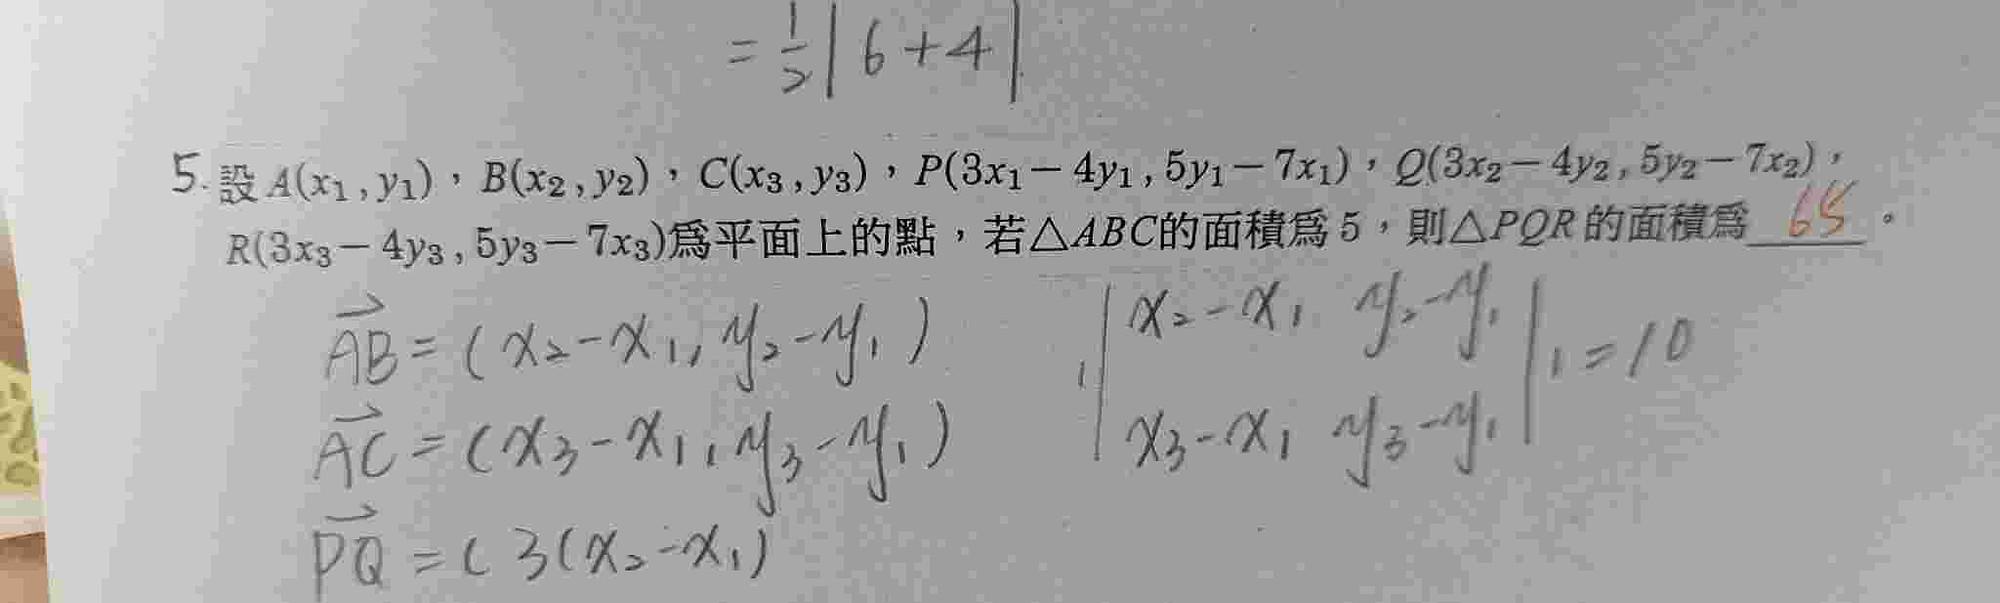 = 1/2 | 6 + 4 |
5. 設 A(x₁, y₁)，B(x₂, y₂)，C(x₃, y₃)，P(3x₁－4y₁, 5y₁－7x₁)，Q(3x₂－4y₂, 5y₂－7x₂)，
R(3x₃－4y₃, 5y₃－7x₃)為平面上的點，若△ABC的面積為 5，則△PQR 的面積為 65 。
AB = (x₂-x₁, y₂-y₁) | x₂-x₁ y₂-y₁ |
AC = (x₃-x₁, y₃-y₁) | x₃-x₁ y₃-y₁ | = 10
PQ = ( 3(x₂-x₁)